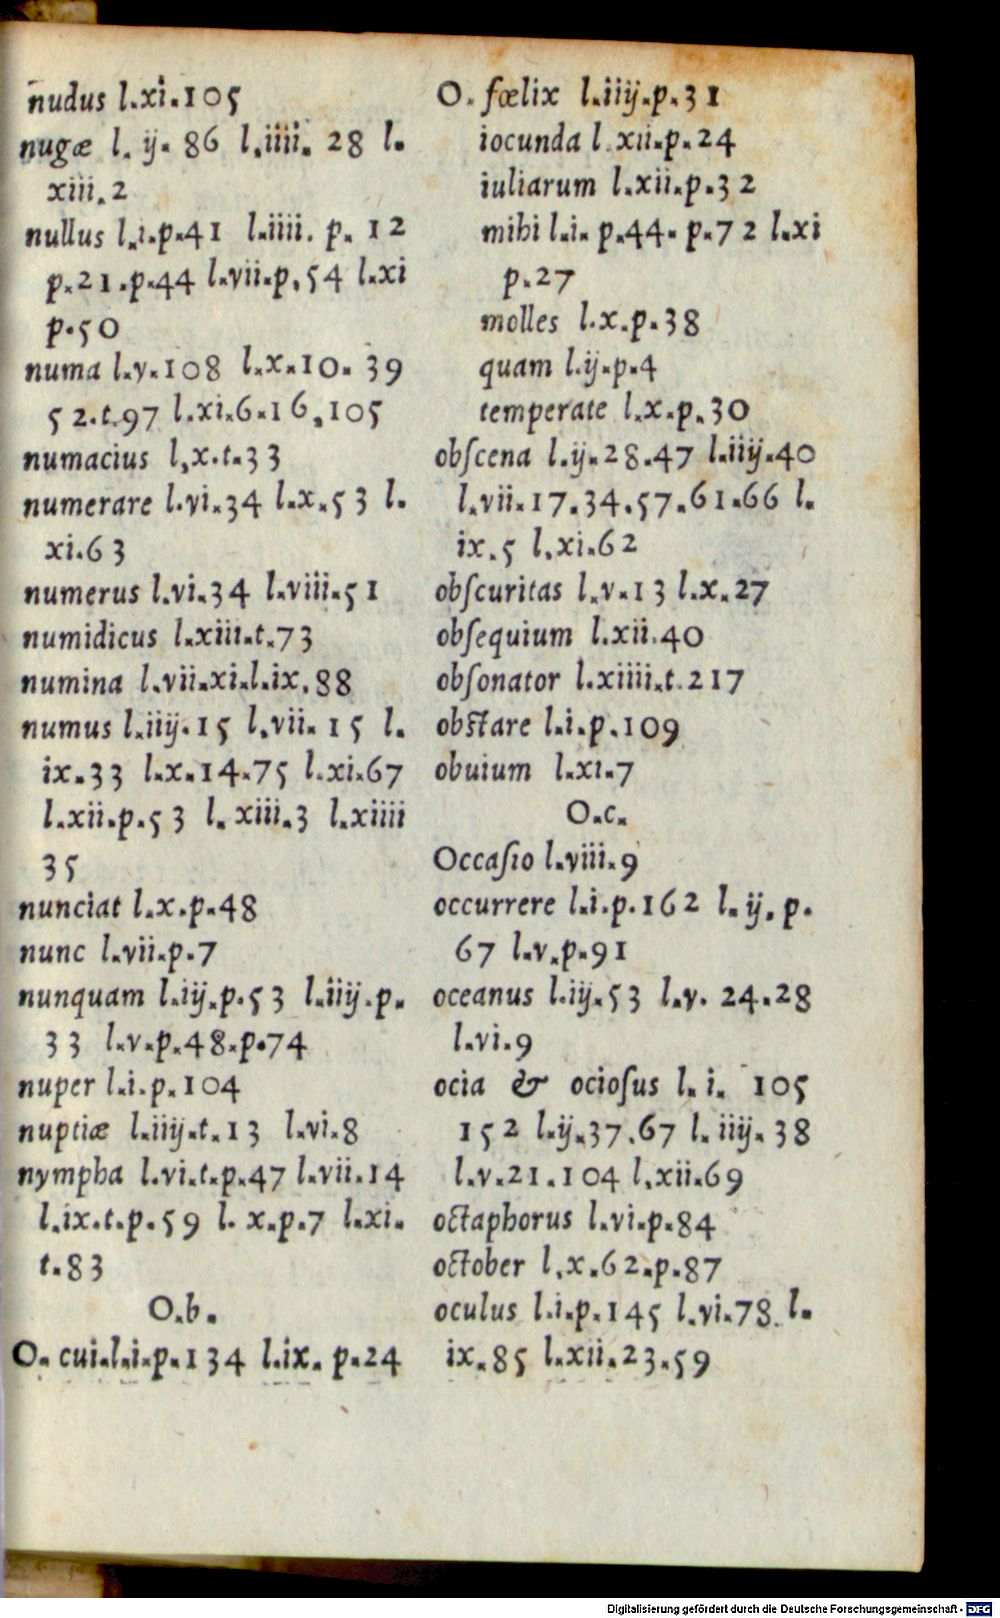 nudus l.xi.105
nugæ l. ij. 86 l.iiii. 28 l.
xiii.2
nullus l.i.p.41 l.iiii. p. 12
p.21.p.44 l.vii.p.54 l.xi
p.50
numa l.v.108 l.x.10. 39
52.t.97 l.xi.6.16.105
numacius l.x.t.33
numerare l.vi.34 l.x.53 l.
xi.63
numerus l.vi.34 l.viii.51
numidicus l.xiii.t.73
numina l.vii.xi.l.ix.88
numus l.iij.15 l.vii. 15 l.
ix.33 l.x.14.75 l.xi.67
l.xii.p.53 l. xiii.3 l.xiiii
35
nunciat l.x.p.48
nunc l.vii.p.7
nunquam l.ij.p.53 l.iij.p.
33 l.v.p.48.p.74
nuper l.i.p.104
nuptiæ l.iij.t.13 l.vi.8
nympha l.vi.t.p.47 l.vii.14
l.ix.t.p.59 l. x.p.7 l.xi.
t.83
O.b.
O. cui.l.i.p.134 l.ix. p.24
O. fœlix l.iij.p.31
iocunda l.xii.p.24
iuliarum l.xii.p.32
mihi l.i. p.44. p.72 l.xi
p.27
molles l.x.p.38
quam l.ij.p.4
temperate l.x.p.30
obſcena l.ij.28.47 l.iij.40
l.vii.17.34.57.61.66 l.
ix.5 l.xi.62
obſcuritas l.v.13 l.x.27
obſequium l.xii.40
obſonator l.xiiii.t.217
obſtare l.i.p.109
obuium l.xi.7
O.c.
Occaſio l.viii.9
occurrere l.i.p.162 l. ij. p.
67 l.v.p.91
oceanus l.ij.53 l.v. 24.28
l.vi.9
ocia & ocioſus l. i. 105
152 l.ij.37.67 l. iij. 38
l.v.21.104 l.xii.69
octaphorus l.vi.p.84
october l.x.62.p.87
oculus l.i.p.145 l.vi.78. l.
ix.85 l.xii.23.59
Digitalisierung gefördert durch die Deutsche Forschungsgemeinschaft - DFG